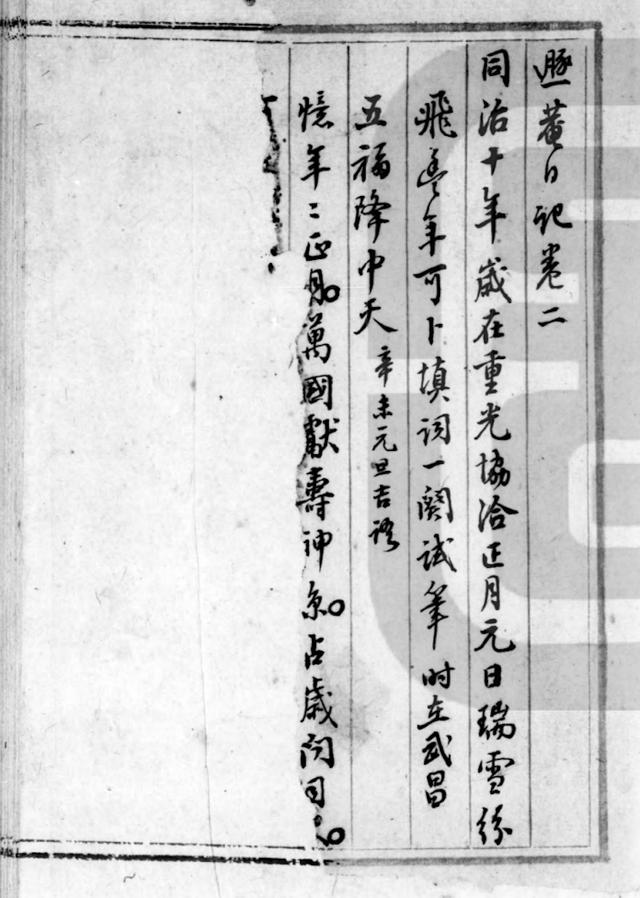 遯菴日記卷二
同治十年歲在重光協洽正月元日瑞雪紛
飛豐年可卜填詞一闋試筆時在武昌
五福降中天 辛未元旦吉語
憶年年正月萬國獻壽神京占歲問